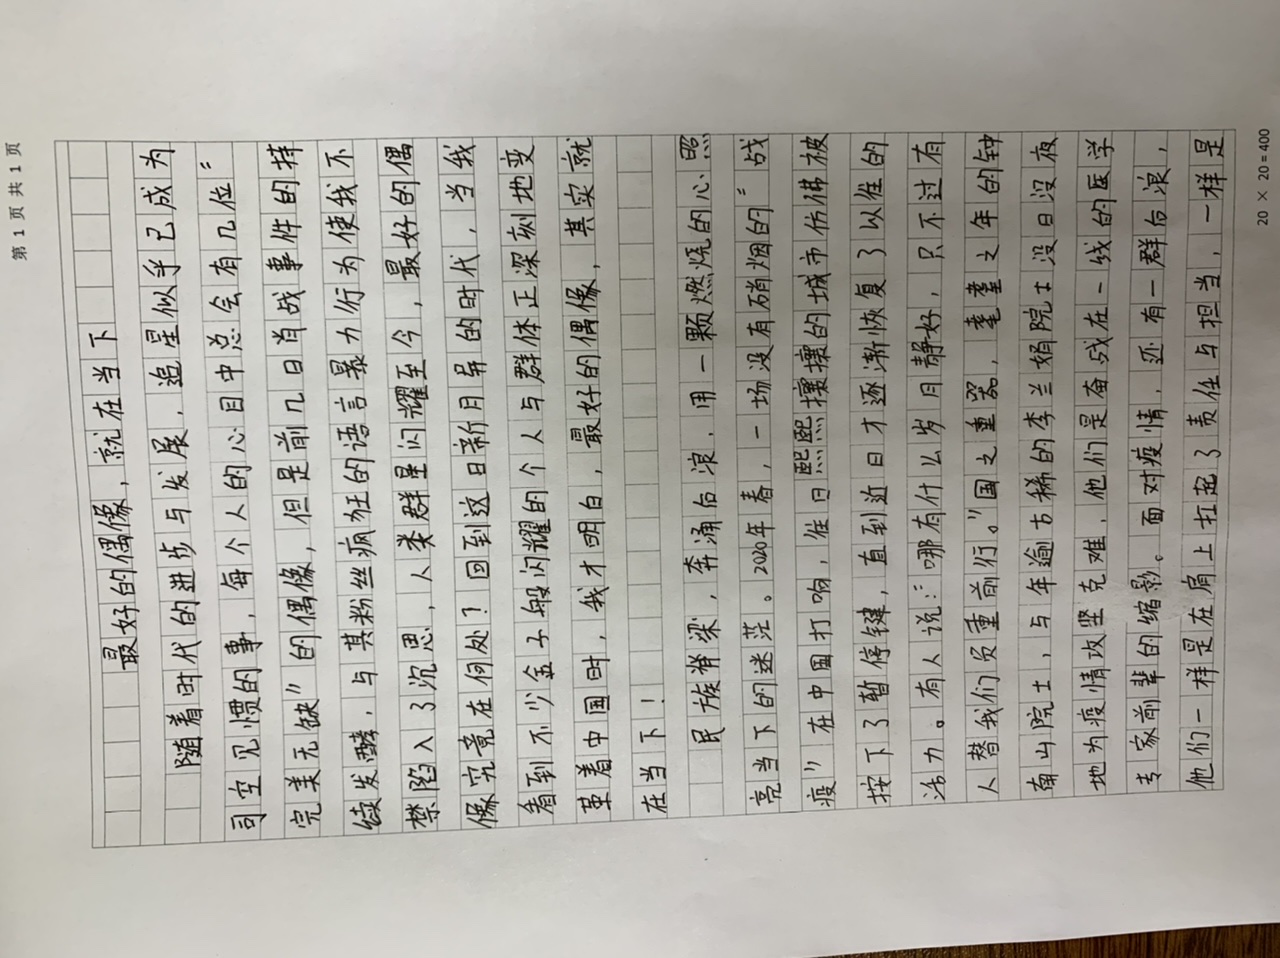 第 1 页 共 1 页
最好的偶像，就在当下
随着时代的进步与发展，追星似乎已成为
司空见惯的事，每个人的心目中总会有几位“
完美无缺”的偶像，但是前几日肖战事件的持
续发酵，与其粉丝疯狂的语言暴力行为使我不
禁陷入了沉思，人类群星闪耀至今，最好的偶
像究竟在何处？回到这日新月异的时代，当我
看到不少金子般闪耀的个人与群体正深刻地变
革着中国时，我才明白，最好的偶像，其实就
在当下！
民族脊梁，奔涌后浪，用一颗燃烧的心照
亮当下的迷茫。2020年春，一场没有硝烟的“战
疫”在中国打响，往日熙熙攘攘的城市仿佛被
按下了暂停键，直到近日才逐渐恢复了以往的
活力。有人说：“哪有什么岁月静好，只不过有
人替我们负重前行。”国之重器，耄耋之年的钟
南山院士，与年逾古稀的李兰娟院士没日没夜
地为疫情攻坚克难，他们是奋战在一线的医学
专家前辈的缩影。面对疫情，还有一群后浪，
他们一样是在肩上扛起了责任与担当，一样是
20 × 20＝400